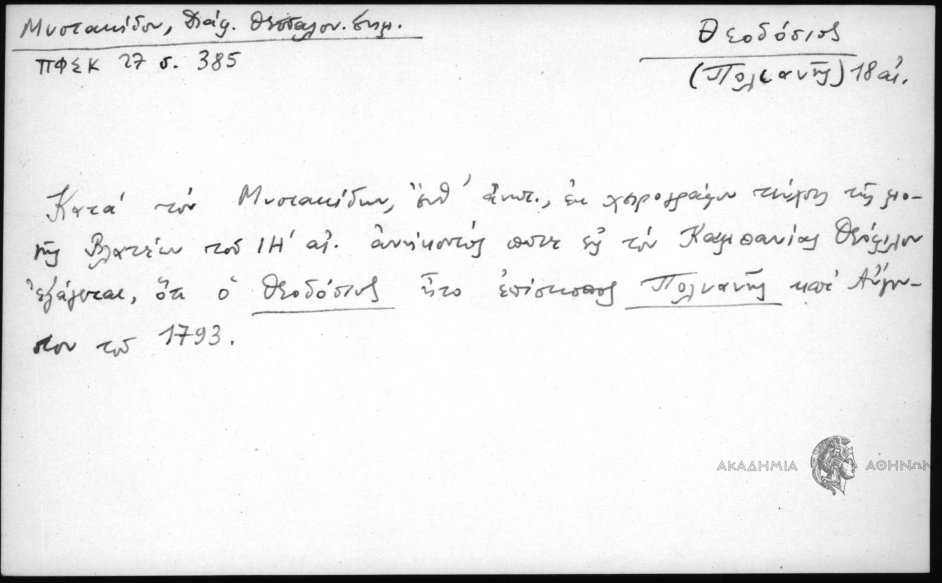 Μυστακίδου, Διάφ. Θεσσαλον. Σημ.
ΠΦΣΚ 27 σ. 385
Θεοδόσιος
(Πολυανῆς) 18 αἰ.
Κατά τόν Μυστακίδην, ἔνθ' ἀνωτ., ἐκ χειρογράφου τεύχους τῆς μο-
νῆς Βλατέων τοῦ ΙΗ' αἰ. ἀνήκοντός ποτε εἰς τόν Καμπανίας Θεόφιλον
ἐξάγεται, ὅτι ὁ Θεοδόσιος ἦτο ἐπίσκοπος Πολυανῆς κατ' Αὔγου-
στον τοῦ 1793.
ΑΚΑΔΗΜΙΑ ΑΘΗΝΩΝ